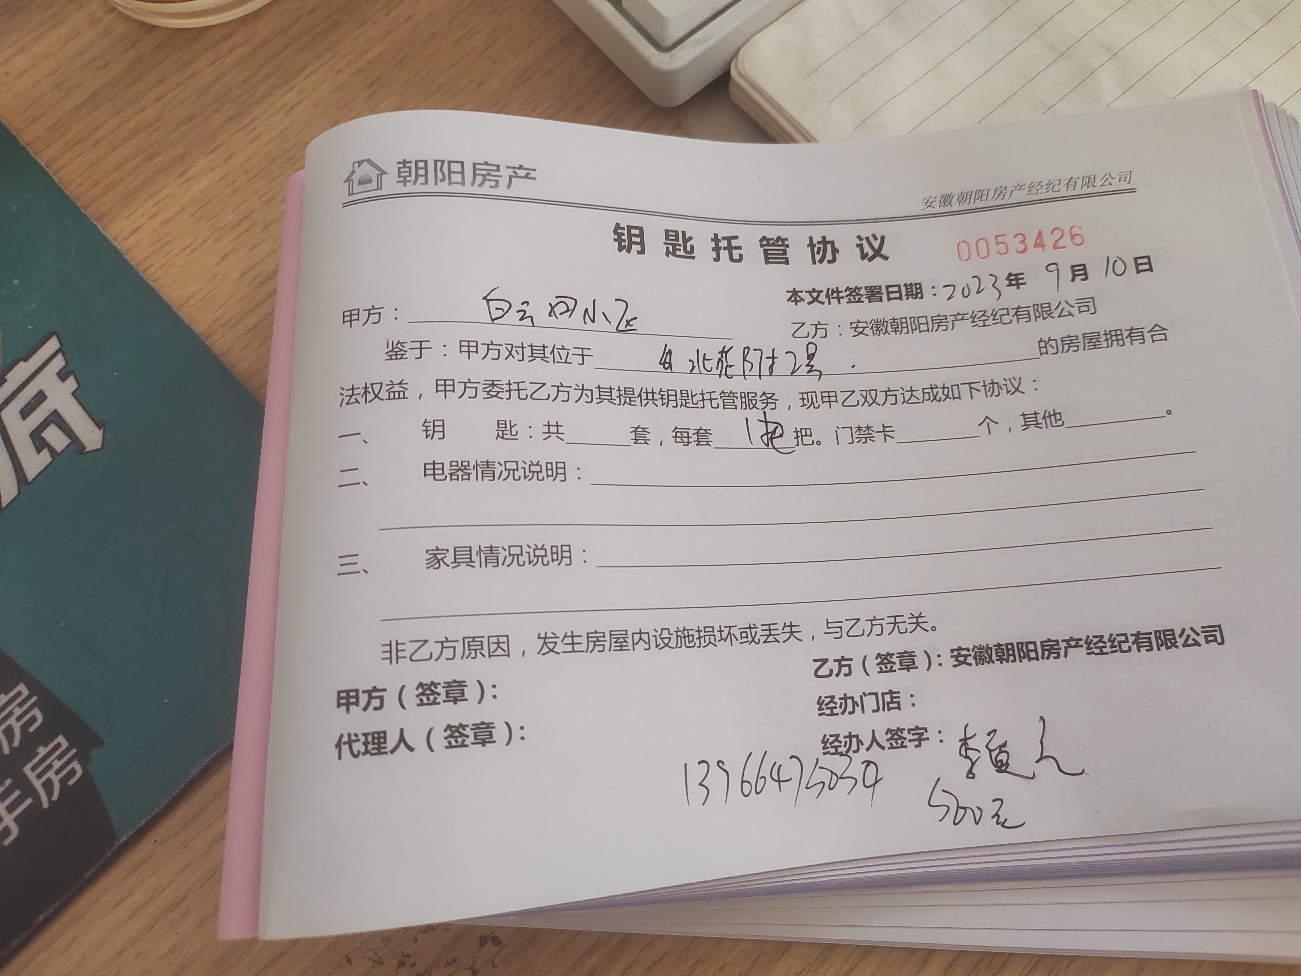 朝阳房产
安徽朝阳房产经纪有限公司
钥匙托管协议 0053426
本文件签署日期：2023年9月10日
甲方：白云田小区
乙方：安徽朝阳房产经纪有限公司
鉴于：甲方对其位于 2号 的房屋拥有合
法权益，甲方委托乙方为其提供钥匙托管服务，现甲乙双方达成如下协议：
一、 钥 匙：共______套，每套 1把 把。门禁卡________个，其他__________。
二、 电器情况说明：
三、 家具情况说明：
非乙方原因，发生房屋内设施损坏或丢失，与乙方无关。
甲方（签章）：
乙方（签章）：安徽朝阳房产经纪有限公司
代理人（签章）：
经办门店：
经办人签字：李
13966475034
500元
底
房
羊房